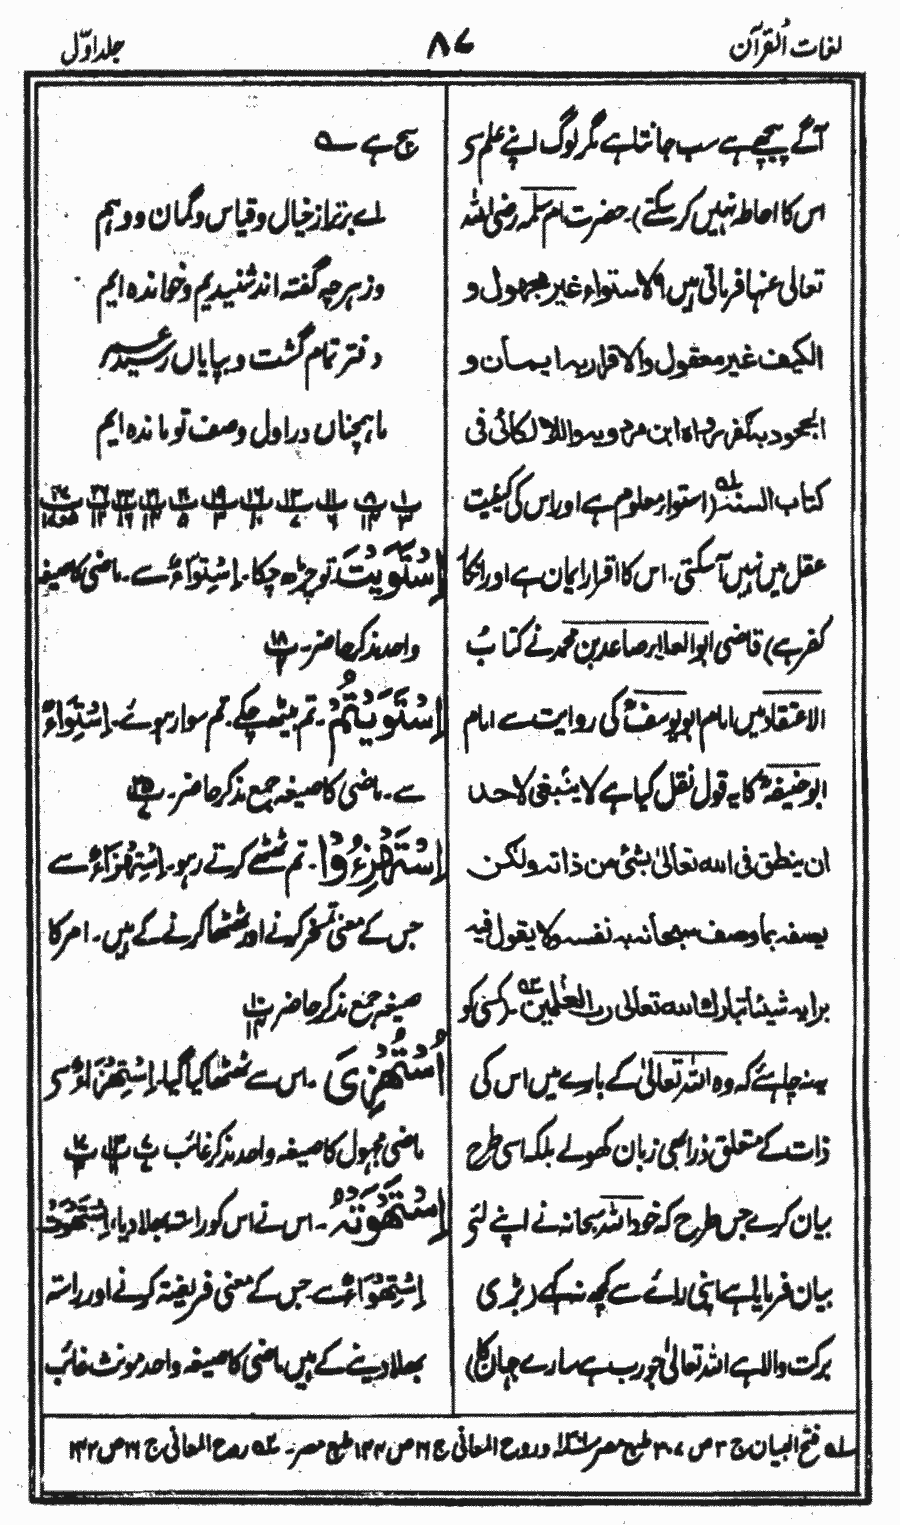 لغات القرآن
۸۷
جلد اوّل
آگے پیچھے ہے سب جانتا ہے مگر لوگ اپنے علم سے
اس کا احاطہ نہیں کر سکتے)۔ حضرت ام سلمہ رضی اللہ
تعالی عنہا فرماتی ہیں الاستواء غیر مجہول و
الکیف غیر معقول والاقرار بہ ایمان و
الجحود بہ کفر رواہ ابن مردویہ واللالکائی فی
کتاب السنۃ (استوار معلوم ہے اور اس کی کیفیت
عقل میں نہیں آسکتی۔ اس کا اقرار ایمان ہے اور انکار
کفر ہے) قاضی ابو العلاء صاعد بن محمد نے کتاب
الاعتقاد میں امام ابو یوسف کی روایت سے امام
ابو حنیفہ کا یہ قول نقل کیا ہے لا ینبغی لاحد
ان ینطق فی اللہ تعالیٰ بشئ من ذاتہ ولکن
یصفہ بما وصف سبحانہ بہ نفسہ ولا یقول فیہ
برایہ شیئا تبارک اللہ تعالی رب العٰلمین (کسی کو
یہ نہ چاہئے کہ وہ اللہ تعالیٰ کے بارے میں اس کی
ذات کے متعلق ذرا بھی زبان کھولے بلکہ اسی طرح
بیان کرے جس طرح کہ خود اللہ سبحانہ نے اپنے لئے
بیان فرمایا ہے اپنی رائے سے کچھ نہ کہے (بڑی
برکت والا ہے اللہ تعالیٰ جو رب ہے سارے جہان کا)
سچ ہے ؎
اے برتر از خیال و قیاس و گمان و وہم
وز ہر چہ گفتہ اند شنیدیم و خواندہ ایم
دفتر تمام گشت و بپایاں رسید عمر
ما ہمچناں در اول وصف تو ماندہ ایم
اِسْتَوَيْتَ تو چڑھ چکا۔ اِسْتِوَاءٌ سے۔ ماضی کا صیغہ
واحد مذکر حاضر۔
اِسْتَوَيْتُمْ۔ تم بیٹھ چکے۔ تم سوار ہوئے۔ اِسْتِوَاءٌ
سے۔ ماضی کا صیغہ جمع مذکر حاضر۔
اِسْتَهْزِءُوْا۔ تم ٹھٹھے کرتے رہو۔ اِسْتِهْزَاءٌ سے
جس کے معنی تمسخر کرنے اور ٹھٹھا کرنے کے ہیں۔ امر کا
صیغہ جمع مذکر حاضر
اُسْتُهْزِئَ۔ اس سے ٹھٹھا کیا گیا۔ اِسْتِهْزَاءٌ سے
ماضی مجہول کا صیغہ واحد مذکر غائب
اِسْتَهْوَتْهُ۔ اس نے اس کو راستہ بھلا دیا، اِسْتَهْوَتْ
اِسْتِهْوَاءٌ سے۔ جس کے معنی فریفتہ کرنے اور راستہ
بھلا دینے کے ہیں ماضی کا صیغہ واحد مونث غائب
لہ فتح البیان ج ۳ ص ۳۰۷ طبع مصر وروح المعانی ج ۱۶ ص ۱۴۳ طبع مصر۔ ۲ہ روح المعانی ج ۱۶ ص ۱۴۲